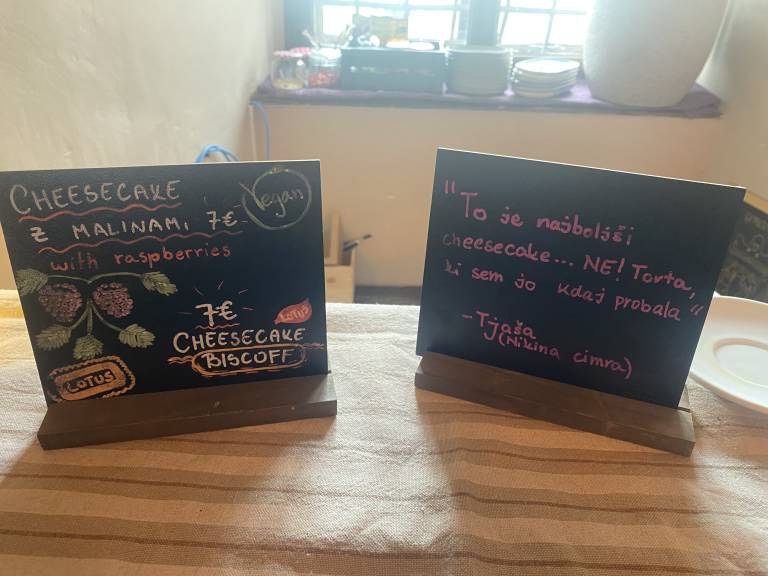 CHEESECAKE
Z MALINAMI 7€
Vegan
with raspberries
7€
LOTUS
CHEESECAKE
BISCOFF
LOTUS
"To je najboljši
cheesecake... NE! Torta,
ki sem jo kdaj probala"
- Tjaša
(Nikina cimra)